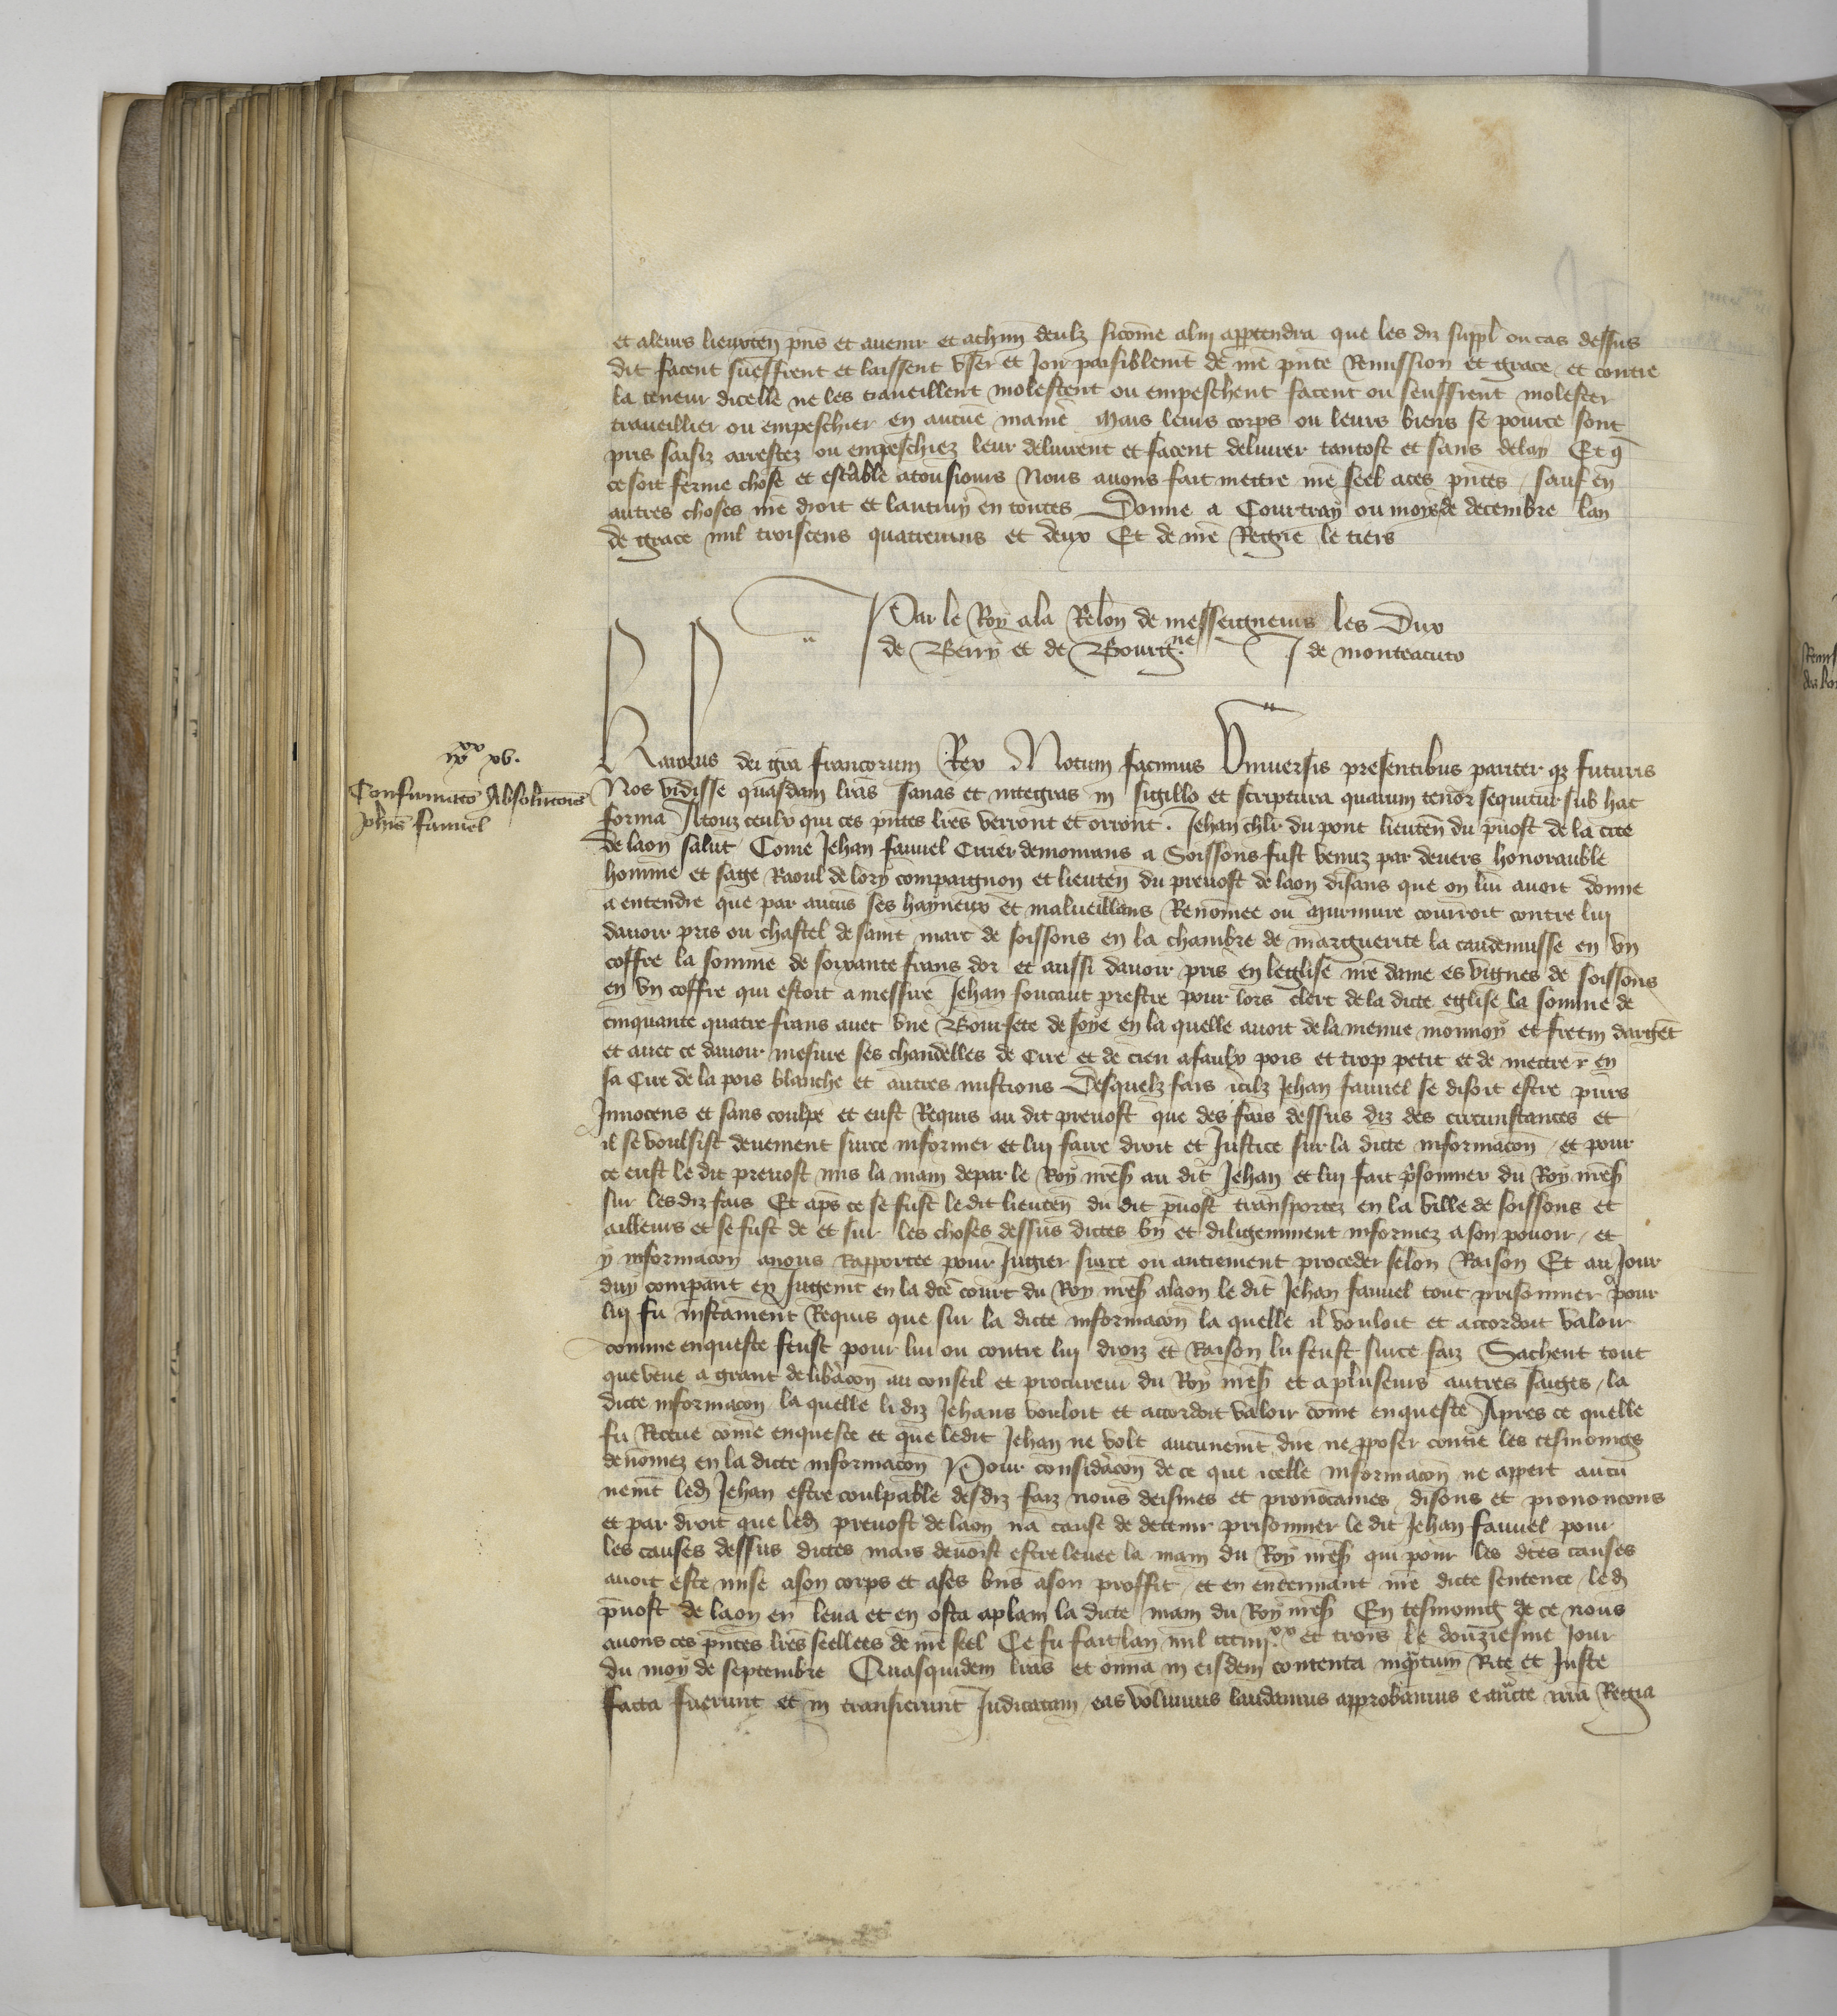 et aleurs lieuxten pns et avenir et achun deulz sicome alui appertendra que les diz suppl ou cas dessus
dit facent sueffrent et laissent user et Joir paisiblemt de nre pnte Remission et grace et contre
la teneur dicelle ne les traveillent molestent ou empeschent facent ou seuffrent molester
traveillier ou empeschier en aucune maniere Mais leurs corps ou leurs biens se pource sont
pris saisiz arrestez ou empeschiez leur delivrent et facent delivrer tantost et sans delay Et q
ce soit ferme chose et estable atousiours Nous avons fait mettre nre seel aces pntes sauf en
autres choses nre droit et lautruy en toutes Donne a Courtray ou moys de decembre lan
de grace mil troiscens quatrevins et deux Et de nre Regne le tiers
Par le Roy ala Relon de messeigneurs les Dux
de Berry et de Bourg.ne J de monteacuto
iiiixx xv.
Confirmato Absolutois
Johis fauvel
Karolus dei gra francorum Rex Notum facimus Universis presentibus pariter qz futuris
Nos vidisse quasdam lras sanas et integras in sigillo et scriptura quarum tenor sequitur sub hac
forma Atouz ceulx qui ces pntes lres verront et orront. Jehan chlr du pont lieuten du pvost de la cite
de laon salut Come Jehan fauvel Cirier demourans a Soissons fust venuz par devers honorauble
homme et sage Raoul de lory compaignon et lieuten du prevost de laon disans que on lui avoit donne
a entendre que par aucuns ses hayneux et malueillans Renomee ou Murmure courroit contre lui
davoir pris ou chastel de saint marc de soissons en la chambre de marguerite la caudemusse en un
coffre la somme de soixante frans dor et aussi davoir pris en leglise nre dame es vignes de soissons
en un coffre qui estoit a messire Jehan foucaut prestre pour lors clerc de la dicte eglise la somme de
cinquante quatre frans avec une Boursete de soye en la quelle avoit de la menue monnoy et fretin dargent
et avec ce davoir mesure ses chandelles de Cire et de cieu afaulx pois et trop petit et de mettre en
sa Cire de la pois blanche et autres mistions Desquelz fais icilz Jehan fauvel se disoit estre purs
Innocens et sans coulpe et eust Requis au dit prevost que des fais dessus diz des circunstances et
il se voulsist deuement surce informer et lui faire droit et Justice sur la dicte informacon et pour
ce eust le dit prevost mis la main depar le Roy nres au dit Jehan et lui fait prisonner du Roy nres
sur lesdiz fais Et aps ce se fust le dit lieuten du dit pvost transportez en la ville de soissons et
ailleurs et se fust de et sur les choses dessus dictes bn et diligemment informez a son povoir et
y informacon anous Rapportee pour Jugier surce ou autrement proceder selon Raison Et au Jour
duy compant en Jugemt en la dce court du Roy nres alaon le dit Jehan fauvel tout prisonner pour
lui fu instament Requis que sur la dicte informacon la quelle il vouloit et accordoit valoir
comme enqueste feust pour lui ou contre lui droiz et Raison lu feust surce faiz Sachent tout
que veue a grant delibacon au conseil et procureur du Roy nres et a pluseurs autres saiges la
dicte informacon la quelle li diz Jehans vouloit et accordoit valoir come enqueste Apres ce quelle
fu Receue come enqueste et que ledit Jehan ne volt aucunemt dire ne pposer contre les tesmoings
denomez en la dicte informacon Pour consideracon de ce que icelle informacon ne appert aucu
nemt led Jehan estre coulpable desdiz faiz nous deismes et pronocames disons et prononcons
et par droit que led prevost de laon na cause de detenir prisonner le dit Jehan fauvel pour
les causes dessus dictes mais devoist estre levee la main du Roy nres qui pour les dces causes
avoit este mise a son corps et ases bns a son proffit et en enterinant nre dicte sentence led
pvost de laon en leva et en osta aplain la dicte main du Roy nres En tesmoing de ce nous
avons ces pntes lres seellees de nre seel Ce fu fait lan mil ccciiiixx et trois le douziesme Jour
du moy de septembre Quasquidem lras et omnia in eisdem contenta inqtum Rite et Juste
facta fuerunt et in transierunt Judicatam eas volumus laudamus approbamus e aucte nra Regia